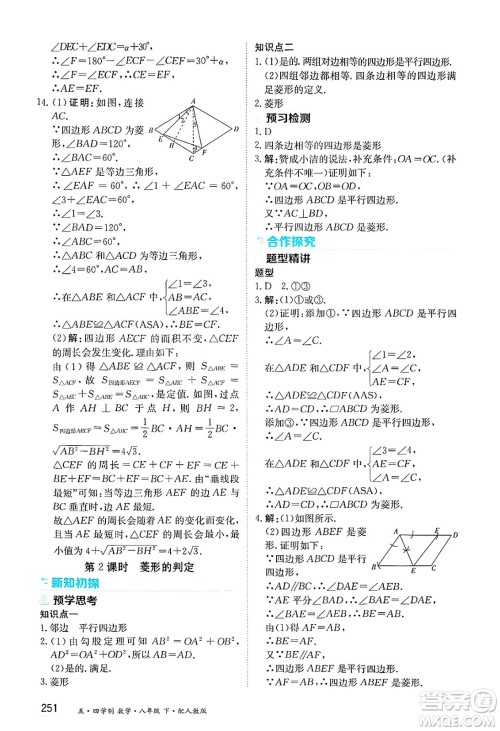 ∠DEC+∠EDF+∠CFE=360°,
∴∠F=180°-∠EDF=180°-120°
∴∠F=60°.
14.(1)证明:如图,连接
AC.
∵四边形 ABCD 为菱形,
∠BAD=120°,
∴∠BAC=60°.
∵△AEF 是等边三角形,
∴∠EAF=60°.
∠3+∠EAC=60°.
∴∠1=∠3.
又∵∠BAD=120°,
∴∠ABC=60°.
∴△ABC 和△ACD 为等边三角形.
∴∠4=60°,AC=AB.
∴在△ABE 和△ACF 中,{∠1=∠3,
AB=AC,
∠ABE=∠4,
∴△ABE≌△ACF(ASA).∴BE=CF.
(2)四边形 AECF 的面积不变,△CEF
的周长会发生变化.理由如下:
由(1)得△ABE≌△ACF,则 S△ABE=
S△ACF,故 S四边形AECF=S△AEC+S△ACF=
S△AEC+S△ABE=S△ABC,是定值.如图,过点
A 作 AH⊥BC 于点 H,则 BH=2.
S四边形AECF=S△ABC=1/2BC·AH=1/2BC·
√AB²-BH²=4√3.
△CEF 的周长=CE+CF+EF=CE+
BE+EF=BC+EF=BC+AE.由“垂线段
最短”可知:当等边三角形 AEF 的边 AE 与
BC 垂直时,边 AE 最短.
故△AEF 的周长会随着 AE 的变化而变
化,且当 AE 最短时,△CEF 的周长会最
小,最小值为 4+√AB²-BH²=4+2√3.
第 2 课时 菱形的判定
新知初探
预学思考
知识点一
1.邻边 平行四边形
2.(1)由勾股定理可得 OA²+OD²=
AD²→∠AOD=90°→AC⊥BD.
(2)是的.满足.
3.菱形
251 五·四学制 数学·八年级 下·配人教版
知识点二
1.(1)是的.两组对边相等的四边形是平行四边形.
(2)四组邻边相等.四条边相等的四边形满足
菱形的定义.
2.菱形
预习检测
1.D
2.四条边相等的四边形是菱形
3.解:赞成小洁的说法,补充条件:OA=OC.(补
充条件不唯一)证明如下:
∵OA=OC,OB=OD,
∴四边形 ABCD 是平行四边形.
又∵AC⊥BD,
∴平行四边形 ABCD 是菱形.
合作探究
题型精讲
题型
1.D 2.①③
3.解:(1)①或③
(2)证明:添加①,∵四边形 ABCD 是平行四边
形,∴∠A=∠C.
在△ADE 和△CDF 中,{∠1=∠2,
∠A=∠C,
AE=CF,
∴△ADE≌△CDF(AAS).
∴AD=CD,∴▱ABCD 是菱形.
添加③,∵四边形 ABCD 是平行四边形,
∴∠A=∠C.
在△ADE 和△CDF 中,{∠A=∠C,
AE=CF,
∠3=∠4,
∴△ADE≌△CDF(ASA).
∴AD=CD,∴▱ABCD 是菱形.
4.解:(1)如图所示.
(2)四边形 ABEF 是菱形.
证明如下:
∵AE 平分∠BAF,
∴∠BAE=∠EAF.
∵四边形 ABCD 为平行四边形,
∴BC∥AD,∴∠AEB=∠EAF.
∴∠BAE=∠AEB,∴AB=BE.
由(1)得 AF=AB,
∴BE=AF.
又∵BE∥AF,
∴四边形 ABEF 是平行四边形.
∵AF=AB,
∴四边形 ABEF 是菱形.